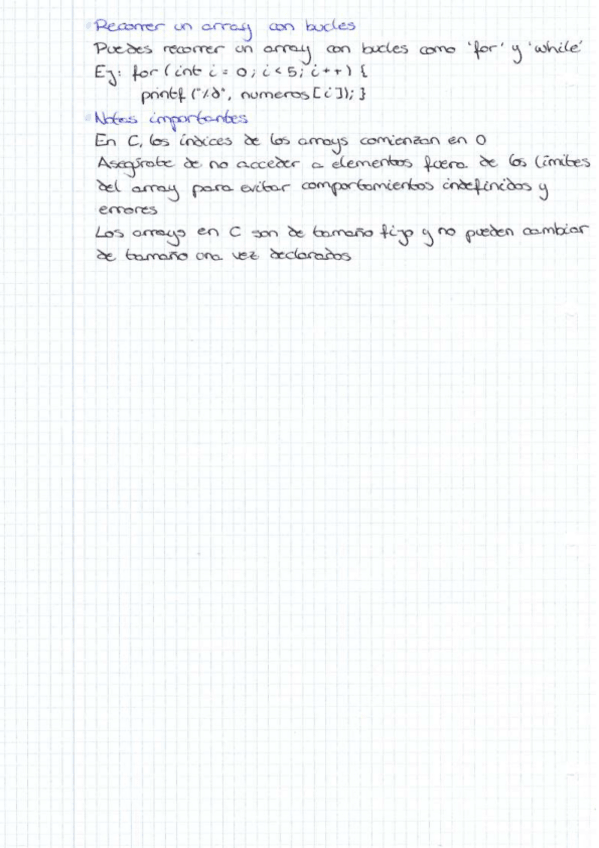 Recorrer un array con bucles
Puedes recorrer un array con bucles como 'for' y 'while'
Ej: for (int i = 0; i < 5; i++) {
printf ("%d", numeros [i]); }
Notas importantes
En C, los índices de los arrays comienzan en 0
Asegúrate de no acceder a elementos fuera de los límites
del array para evitar comportamientos indefinidos y
errores
Los arrays en C son de tamaño fijo y no pueden cambiar
de tamaño una vez declarados